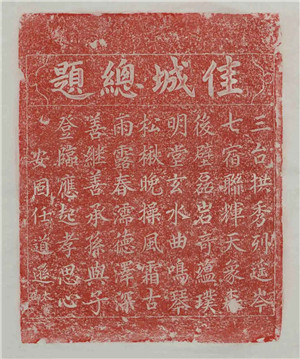 佳城總題
三台拱秀列遥岑
七宿聯輝天冡
後壁磊岩奇璞
明堂玄水曲鳴琴
松楸晚操風霜古
雨露春濡德澤深
善繼善承孫與子
登歸應起孝思心
友周任道遜